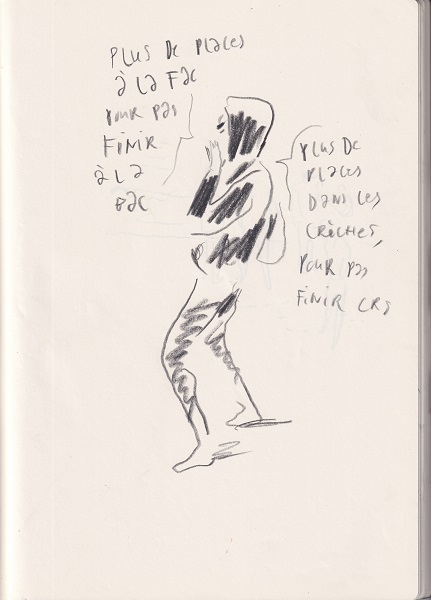 PLUS DE PLACES
À LA FAC
POUR PAS
FINIR
À LA
BAC
PLUS DE
PLACES
DANS LES
CRÈCHES,
POUR PAS
FINIR CRS